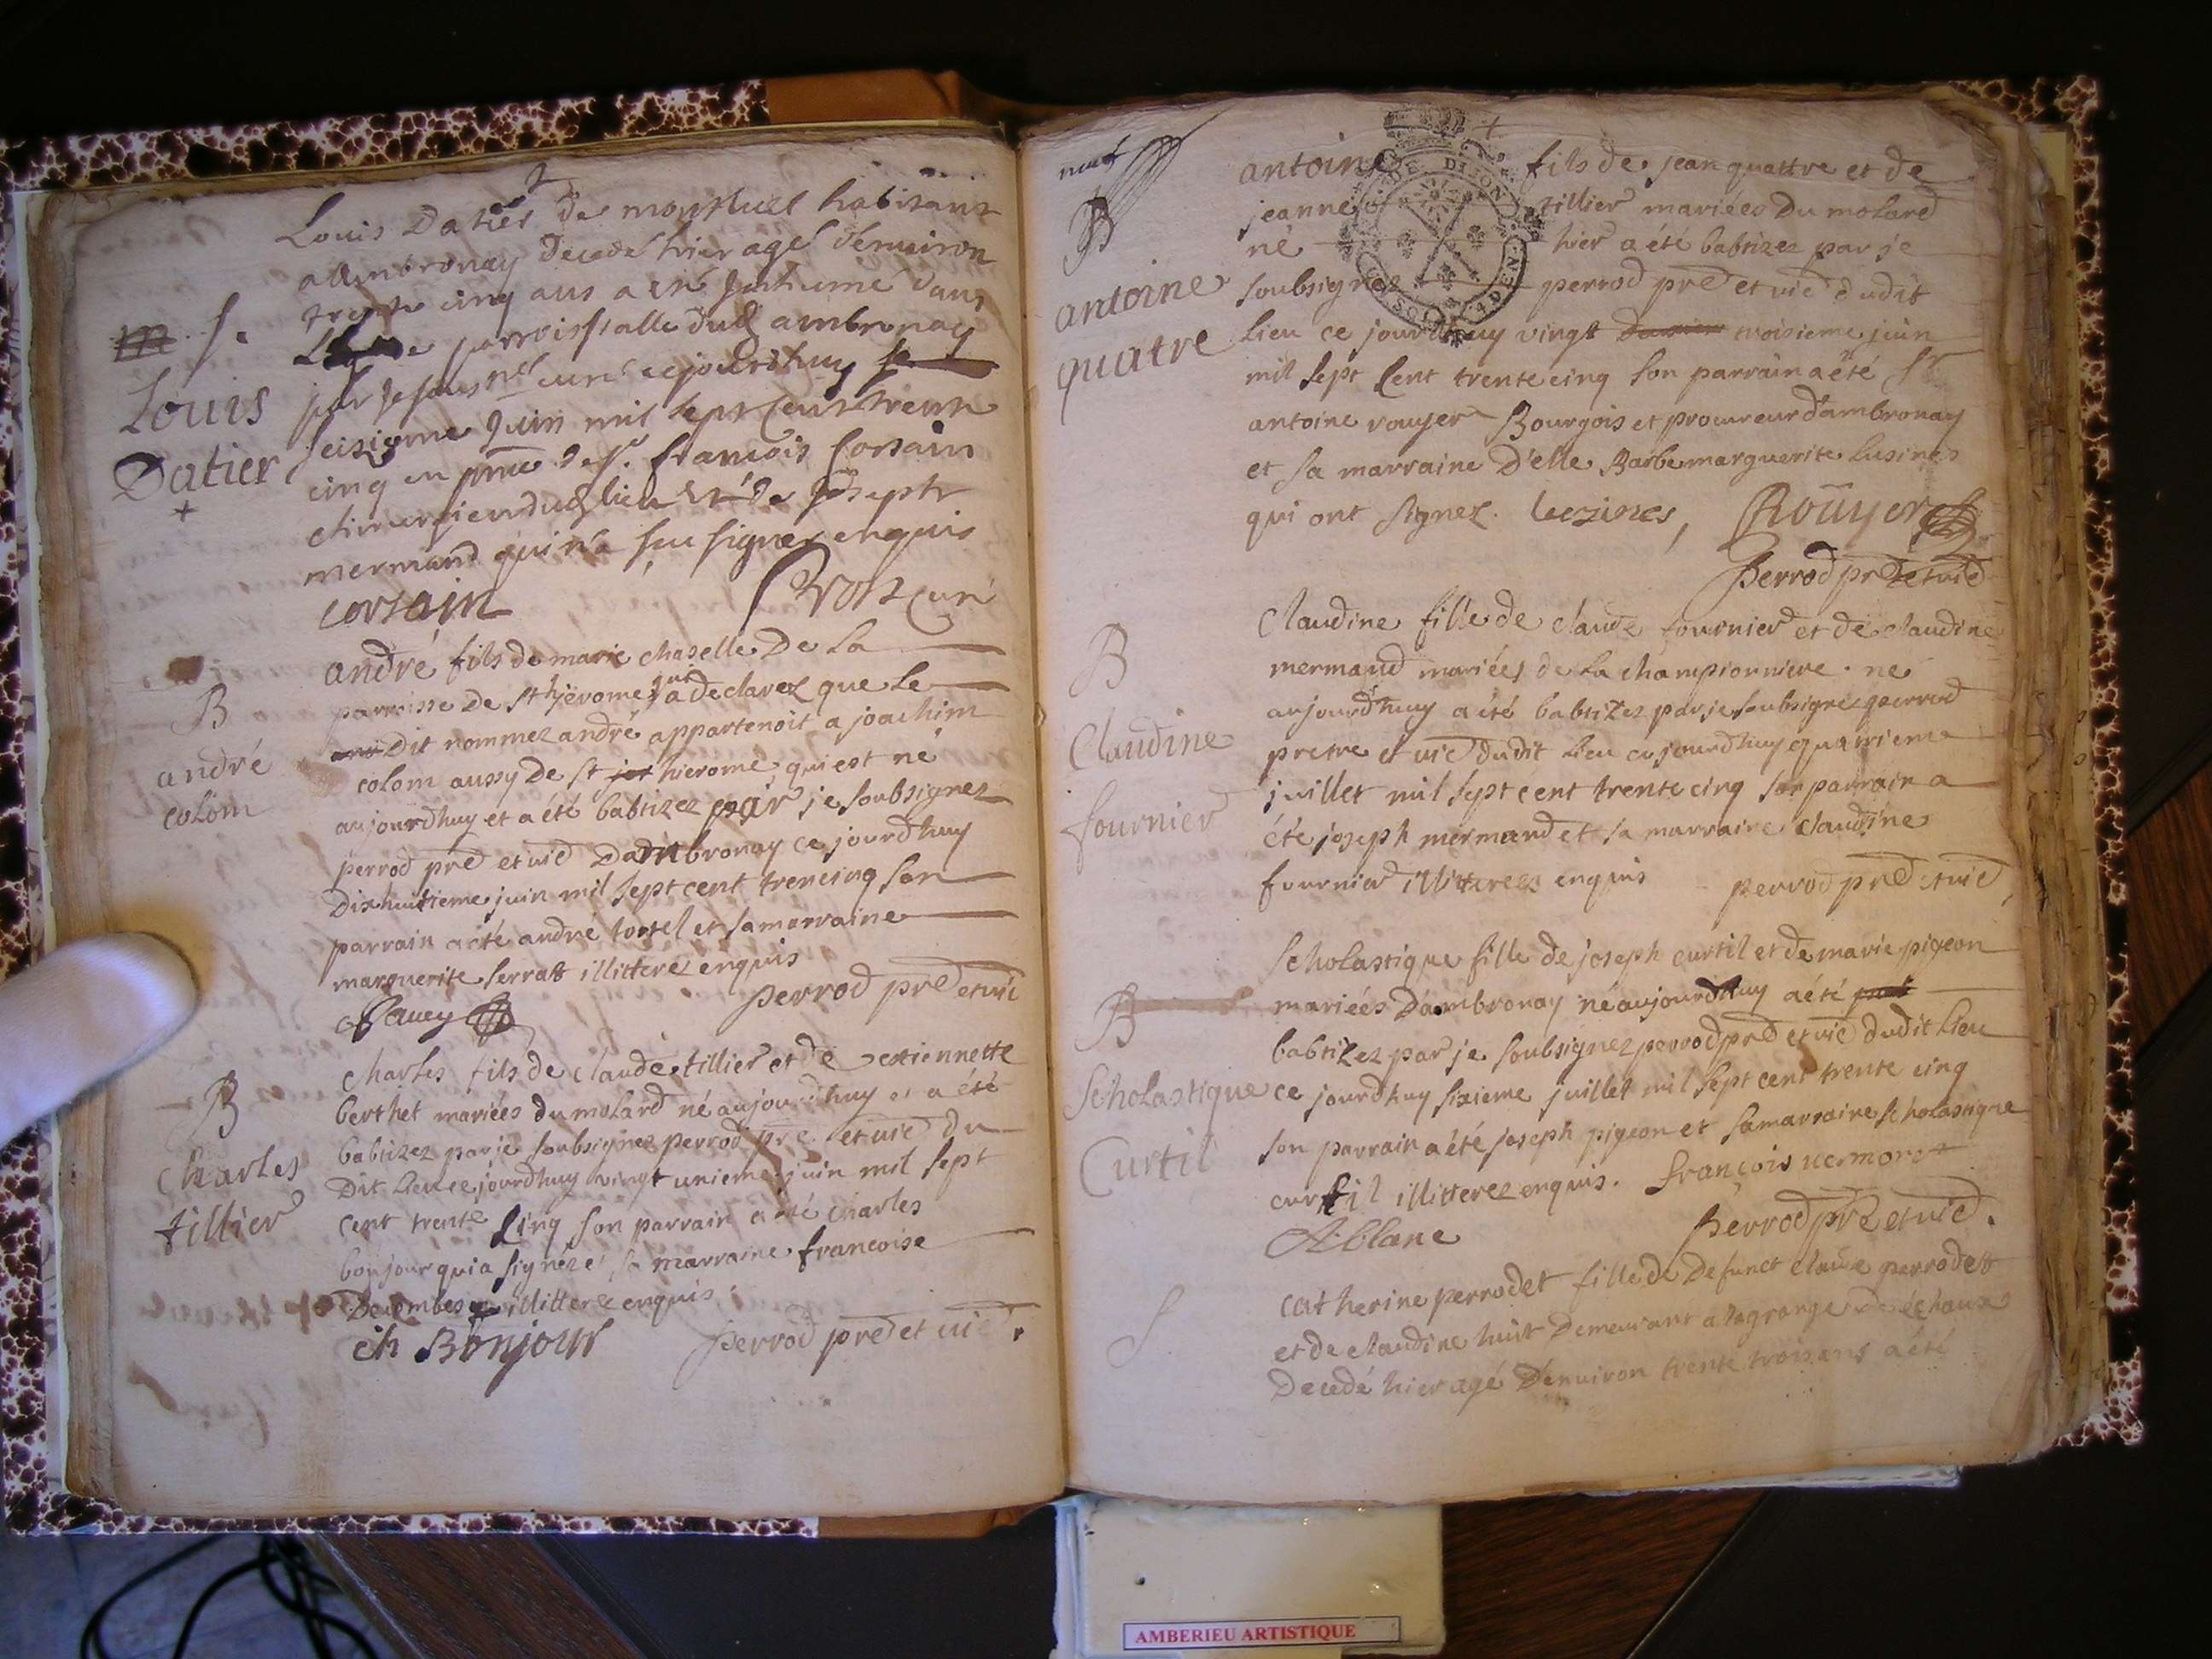 Louis Datier de montluel habitant
a ambronay decedé hier agé denuiron
trente cinq ans a eté Inhumé dans
parroissialle dud ambronay
par Je sousné curé cejourdhuy
seizieme Juin mil sept cent trente
cinq en pnce de sr. francois Corsain
chirurgien dud lieu et de Joseph
mermand qui n'a sçu signer enquis
corsain curé
m S.
Louis
Datier
+
andré fils de marie chaselle De La
parroisse De st hjerome qui a declarez que Le
Dit nommez andré appartenoit a joachim
colom aussy De st hierome qui est né
aujourdhuy et a été babtizez par je soubsignez
perrod pre et vic Dambronay ce jourdhuy
Dixhuitieme juin mil sept cent trencinq son
parrain a eté andré tortel et sa marraine
marguerite serratt illitterez enquis
perrod pre et vic
B
andré
colom
charles fils de claude tillier et de estiennette
berthet mariées du molard né aujourdhuy et a été
babtizez par je soubsignez perrod pre et vic du
Dit Lieu ce jourdhuy vingt unieme juin mil sept
cent trente cinq son parrain a été charles
bonjour qui a signéz et sa marraine francoise
Decombes illitterez enquis
ch Bonjour perrod pre et vic
B
Charles
tillier
neuf
antoine fils de jean quattre et de
jeanne tillier mariées Du molard
né hier a été babtizez par je
soubsignez perrod pre et vic dudit
Lieu ce jourdhuy vingt troisieme juin
mil sept cent trente cinq son parrain a été sr
antoine rouyer Bourgois et procureur d'ambronay
et sa marraine D'elle Barbe marguerite Lusines
qui ont signez. Lezines, Roüyer
Perrod pre et vic
B
antoine
quatre
Claudine fille de claude fournier et de claudine
mermand mariées de La championniere. né
aujourdhuy a été babtizez par je soubsignez perrod
pretre et vic dudit Lieu cejourdhuy quatrieme
juillet mil sept cent trente cinq son parrain a
été joseph mermand et sa marraine claudine
fournier illitterees enquis perrod pre et vic
B
Claudine
fournier
Scholastique fille de joseph curtil et de marie pigeon
mariées Dambronay né aujourdhuy a été
babtizez par je soubsignez perrod pre et vic dudit Lieu
ce jourdhuy sixieme juillet mil sept cent trente cinq
son parrain a été joseph pigeon et sa marraine scholastique
curtil illitterez enquis. françois uermoret
A blanc Perrod pre et vic.
B
Scholastique
Curtil
catherine perrodet fille de Defunct claude perrodet
et de claudine huit Demeurant a la grange
Decedé hier agé Denuiron trente trois ans a été
S
DIJON
AMBERIEU ARTISTIQUE